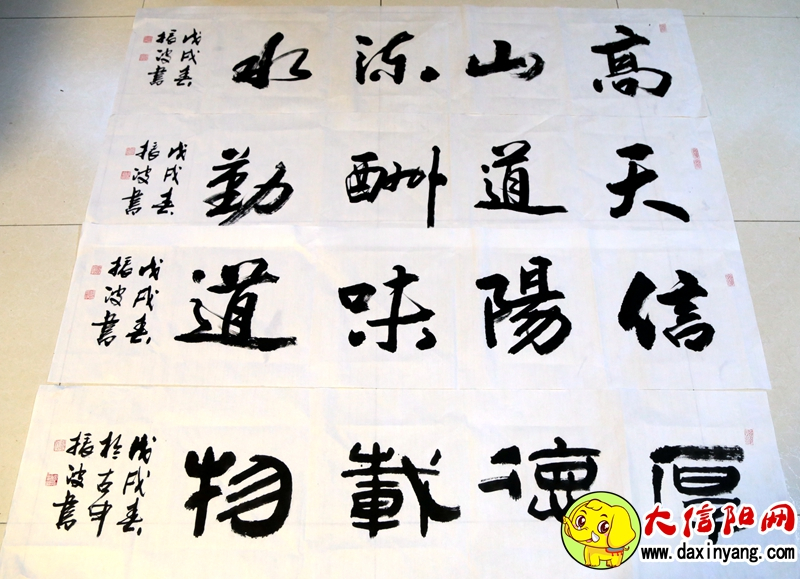 高山流水
戊戌春
振波書
天道酬勤
戊戌春
振波書
信陽味道
戊戌春
振波書
厚德載物
戊戌春
於古申
振波書
大信阳网
www.daxinyang.com